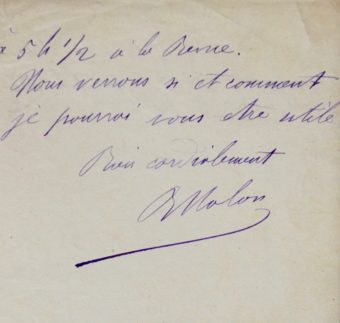 à 5 h 1/2 à la Revue.
Nous verrons si et comment
je pourrai vous etre utile
Bien cordialement
B Malon